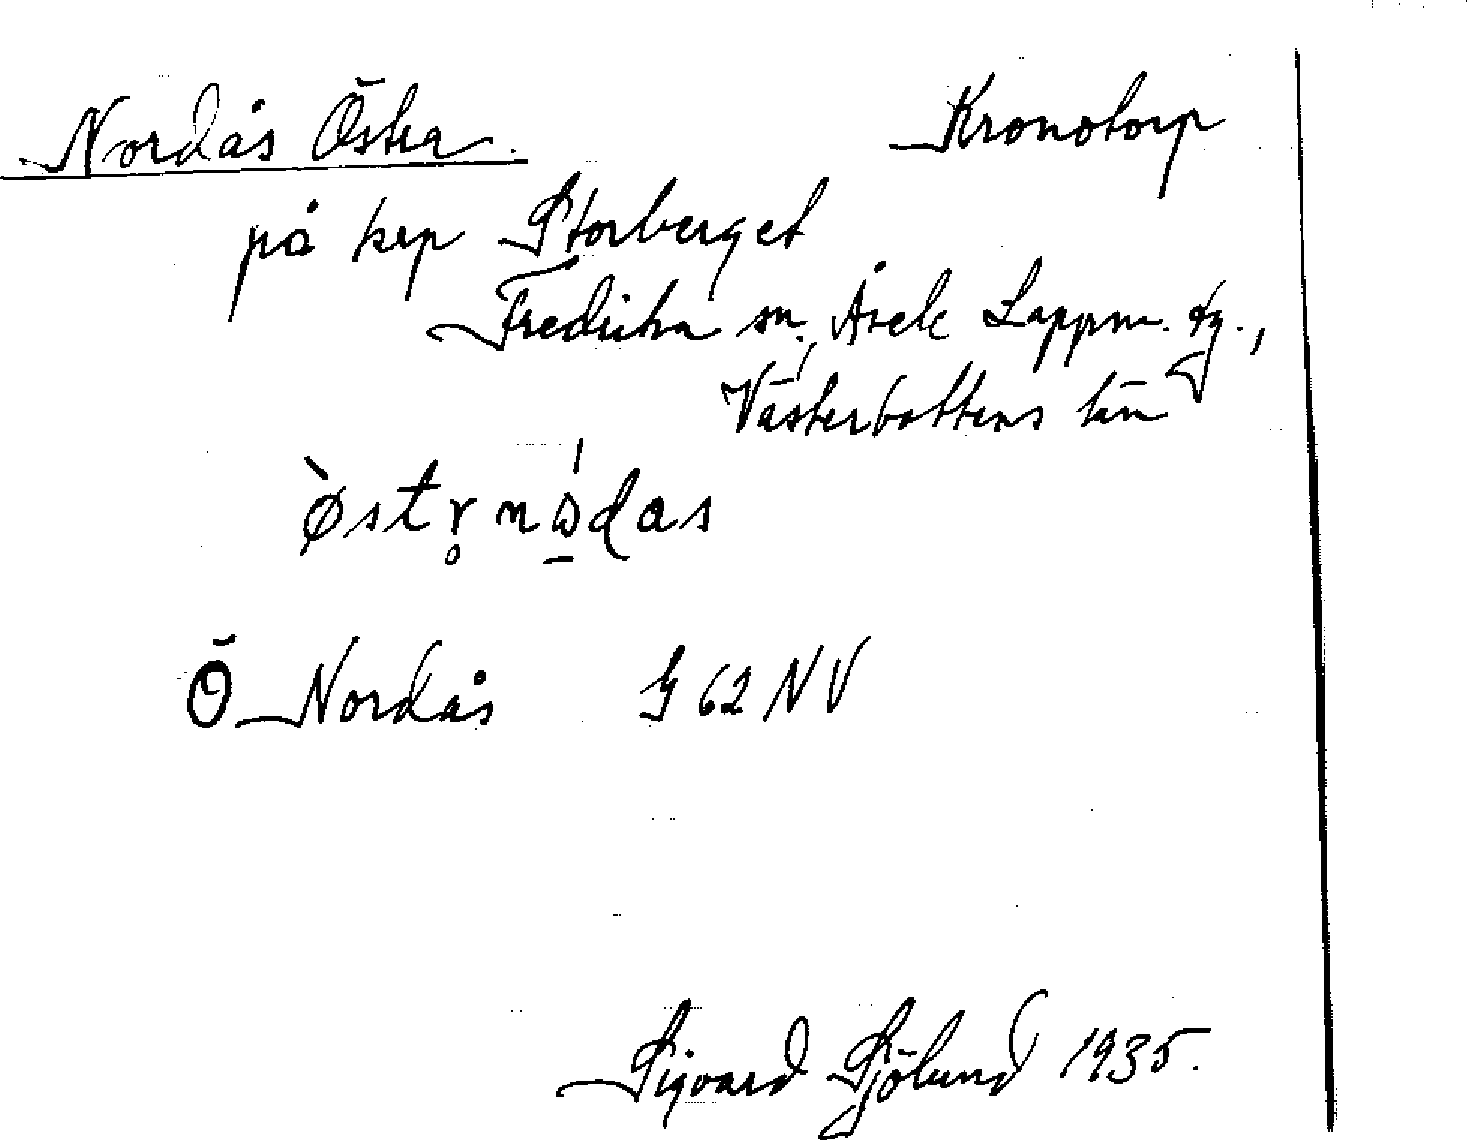 Nordås Östra. Kronotorp
på krp Storberget
Fredrika sn, Åsele Lappm. tg.,
Västerbottens län
Ö Nordås G 62 NV
Sigvard Sjölund 1935.